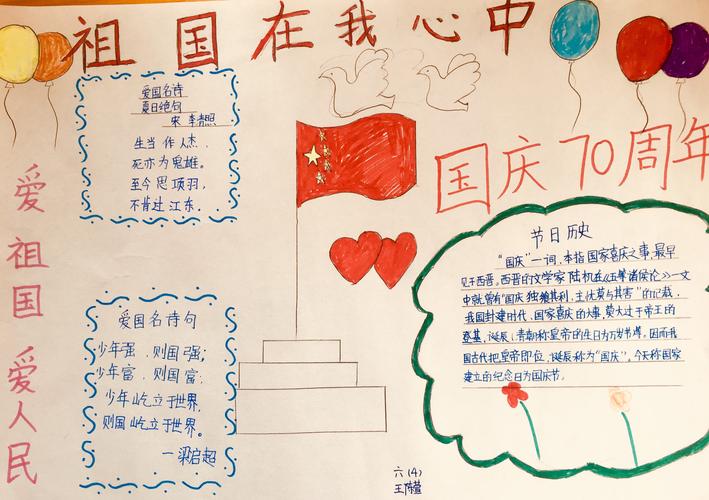 祖国在我心中
爱国名诗
夏日绝句
宋 李清照
生当作人杰,
死亦为鬼雄。
至今思项羽,
不肯过江东.
国庆70周年
爱祖国 爱人民
爱国名诗句
少年强,则国强;
少年富,则国富;
少年屹立于世界,
则国屹立于世界。
—梁启超
节日历史
"国庆"一词,本指国家喜庆之事,最早
见于西晋。西晋的文学家陆机在《五等诸侯论》一文
中就曾有"国庆独飨其利,主忧莫与其害"的记载.
我国封建时代、国家喜庆的大事,莫大过于帝王的
登基、诞辰(清朝称皇帝的生日为万岁节)。因而我
国古代把皇帝即位、诞辰称为"国庆"。今天称国家
建立的纪念日为国庆节。
六(4)
王